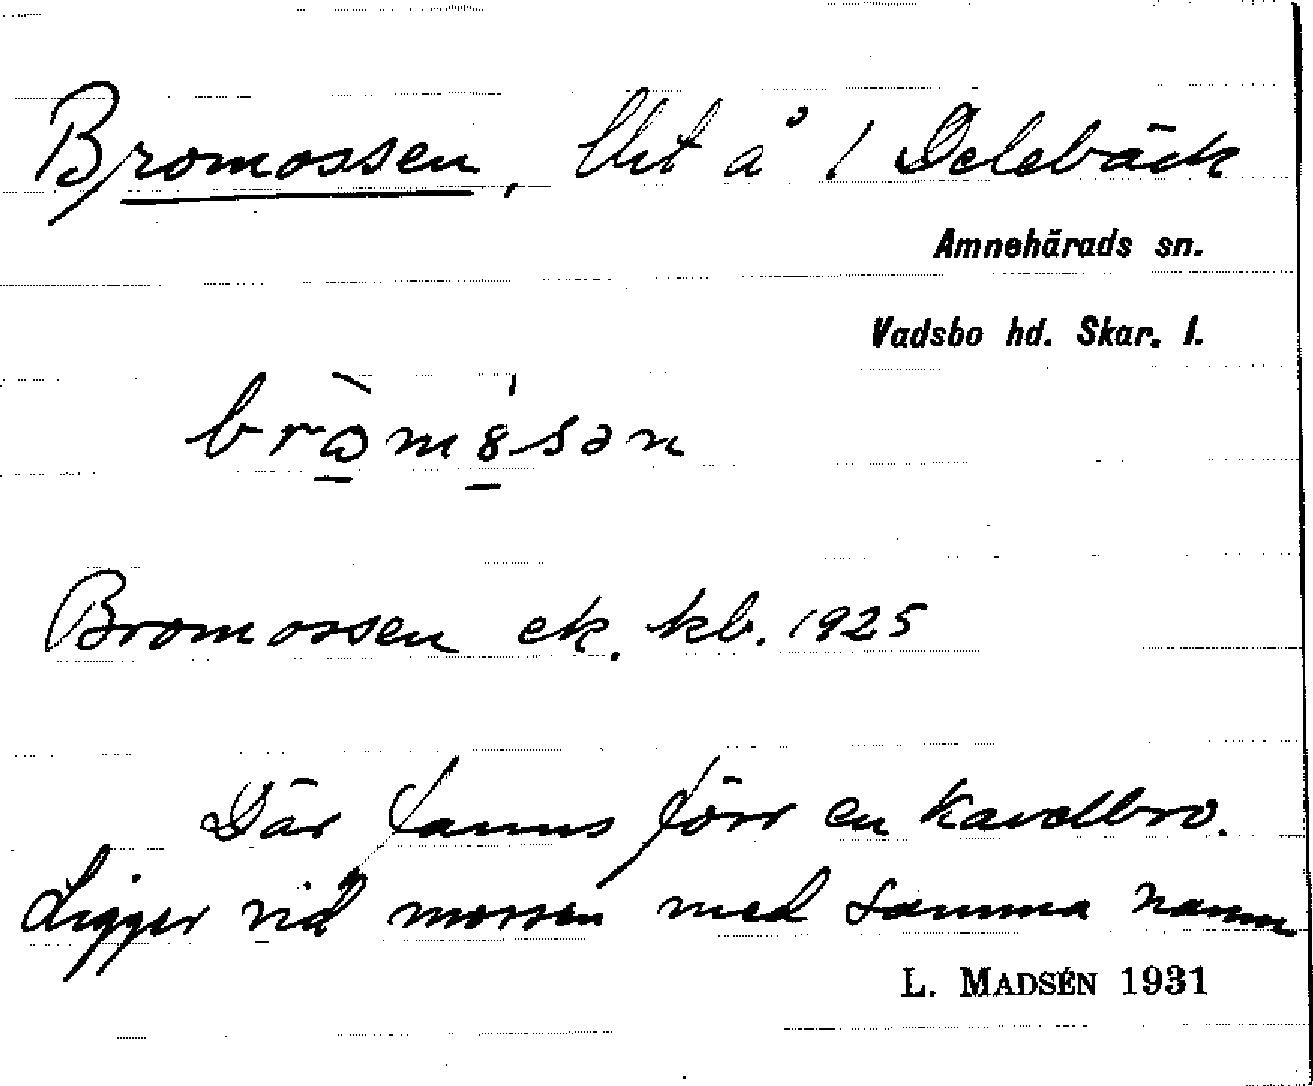 Bromossen, lht å 1 Delebäck
Amnehärads sn.
Vadsbo hd. Skar. l.
Bromossen ek. kb. 1925
Där fanns förr en kavelbro.
Ligger vid mossen med samma namn
L. MADSÉN 1931